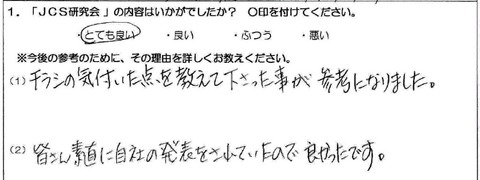 1. 「JCS研究会」の内容はいかがでしたか？ ○印を付けてください。
・とても良い ・良い ・ふつう ・悪い
※今後の参考のために、その理由を詳しくお教えください。
(1) チラシの気付いた点を教えて下さった事が 参考になりました。
(2) 皆さん素直に自社の発表をされていたので 良かったです。